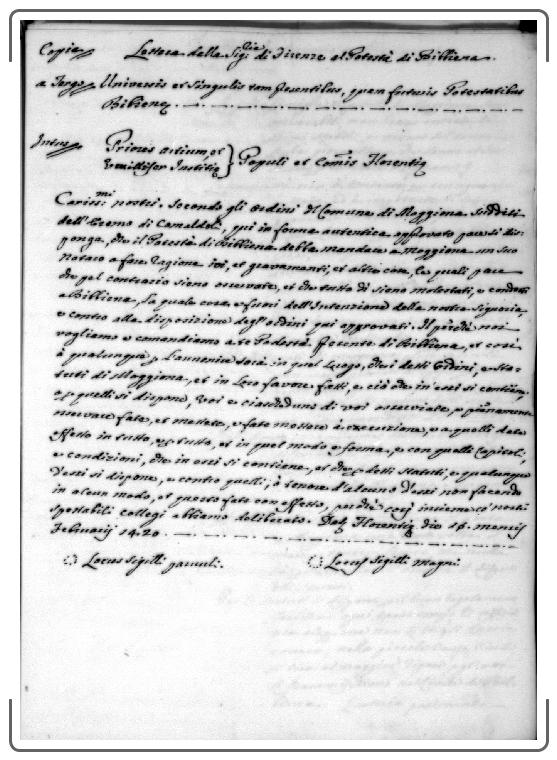 Copia Lettera della Sig.ria di Firenze al Potestà di Bibbiena.
a Tergo Universis et Singulis tam presentibus, quam futuris Potestatibus
Bibienę.
Intus Priores Artium, et
Vexillifer Justitię } Populi et Com̃is Florentię
Carissimi nostri. Secondo gli ordini del Comune di Moggiona sudditi
dell'Eremo di Camaldoli, qui in forma autentica approvato pare si dis-
ponga, che il Potestà di Bibbiena debba mandare a Moggiona un suo
notaro a fare ragione ivi, et gravamenti, et altre cose, le quali pare
che pel contrario sieno osservate, et che tutto dì sieno molestati, e condotti
a Bibbiena, la quale cosa è fuori dell'Intenzione della nostra Signoria,
e contro alla disposizione degl'ordini qui approvati. Il perchè noi
vogliamo e comandiamo a te Podestà presente di Bibbiena, et così
à qualunque per l'avvenire sarà in quel luogo, che i detti Ordini, e Sta-
tuti di Moggiona, et in loro favore fatti, e ciò che in essi si contiene,
e per quelli si dispone, voi e ciascheduno di voi osserviate, e pienamente
osservare fate, et mettete, e fate mettere à esecuzione, e a quelli date
effetto in tutto, e per tutto, et in quel modo e forma, e con quelli Capitoli,
e condizioni, che in essi si contiene, et che per detti Statuti, e qualunque
d'essi si dispone, e contro quelli, ò tenore d'alcuno d'essi non facendo
in alcun modo, et questo fate con effetto, perchè così insieme co' nostri
spettabili Collegi abbiamo deliberato. Dat. Florentię die 15. mensis
Februarij 1420.
Locus Sigilli parvuli. Locus Sigilli magni.